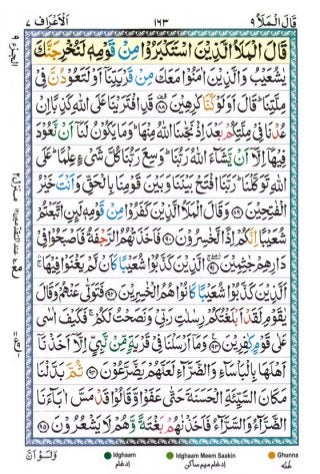 قَالَ الْمَلَاُ ٩ ١٦٣ اَلْاَعْرَاف ٧
قَالَ الْمَلَاُ الَّذِيْنَ اسْتَكْبَرُوْا مِنْ قَوْمِهٖ لَنُخْرِجَنَّكَ
يٰشُعَيْبُ وَالَّذِيْنَ اٰمَنُوْا مَعَكَ مِنْ قَرْيَتِنَاۤ اَوْ لَتَعُوْدُنَّ فِيْ
مِلَّتِنَا ؕ قَالَ اَوَلَوْ كُنَّا كٰرِهِيْنَ ﴿۸۸﴾ قَدِ افْتَرَيْنَا عَلَى اللّٰهِ كَذِبًا اِنْ
عُدْنَا فِيْ مِلَّتِكُمْ بَعْدَ اِذْ نَجّٰىنَا اللّٰهُ مِنْهَا ؕ وَمَا يَكُوْنُ لَنَاۤ اَنْ نَّعُوْدَ
فِيْهَاۤ اِلَّاۤ اَنْ يَّشَآءَ اللّٰهُ رَبُّنَا ؕ وَسِعَ رَبُّنَا كُلَّ شَيْءٍ عِلْمًا ؕ عَلَى
اللّٰهِ تَوَكَّلْنَا ؕ رَبَّنَا افْتَحْ بَيْنَنَا وَبَيْنَ قَوْمِنَا بِالْحَقِّ وَاَنْتَ خَيْرُ
الْفٰتِحِيْنَ ﴿۸۹﴾ وَقَالَ الْمَلَاُ الَّذِيْنَ كَفَرُوْا مِنْ قَوْمِهٖ لَئِنِ اتَّبَعْتُمْ
شُعَيْبًا اِنَّكُمْ اِذًا لَّخٰسِرُوْنَ ﴿۹۰﴾ فَاَخَذَتْهُمُ الرَّجْفَةُ فَاَصْبَحُوْا فِيْ
دَارِهِمْ جٰثِمِيْنَ ﴿۹۱﴾ الَّذِيْنَ كَذَّبُوْا شُعَيْبًا كَاَنْ لَّمْ يَغْنَوْا فِيْهَا ۛ
اَلَّذِيْنَ كَذَّبُوْا شُعَيْبًا كَانُوْا هُمُ الْخٰسِرِيْنَ ﴿۹۲﴾ فَتَوَلّٰى عَنْهُمْ وَقَالَ
يٰقَوْمِ لَقَدْ اَبْلَغْتُكُمْ رِسٰلٰتِ رَبِّيْ وَنَصَحْتُ لَكُمْ ۚ فَكَيْفَ اٰسٰى
عَلٰى قَوْمٍ كٰفِرِيْنَ ﴿۹۳﴾ وَمَاۤ اَرْسَلْنَا فِيْ قَرْيَةٍ مِّنْ نَّبِيٍّ اِلَّاۤ اَخَذْنَاۤ
اَهْلَهَا بِالْبَاْسَآءِ وَالضَّرَّآءِ لَعَلَّهُمْ يَضَّرَّعُوْنَ ﴿۹۴﴾ ثُمَّ بَدَّلْنَا
مَكَانَ السَّيِّئَةِ الْحَسَنَةَ حَتّٰى عَفَوْا وَّقَالُوْا قَدْ مَسَّ اٰبَآءَنَا
الضَّرَّآءُ وَالسَّرَّآءُ فَاَخَذْنٰهُمْ بَغْتَةً وَّهُمْ لَا يَشْعُرُوْنَ ﴿۹۵﴾
وَلَوْ اَنَّ
Idghaam ادغام Idghaam Meem Saakin ادغام میم ساکن Ghunna غنّه